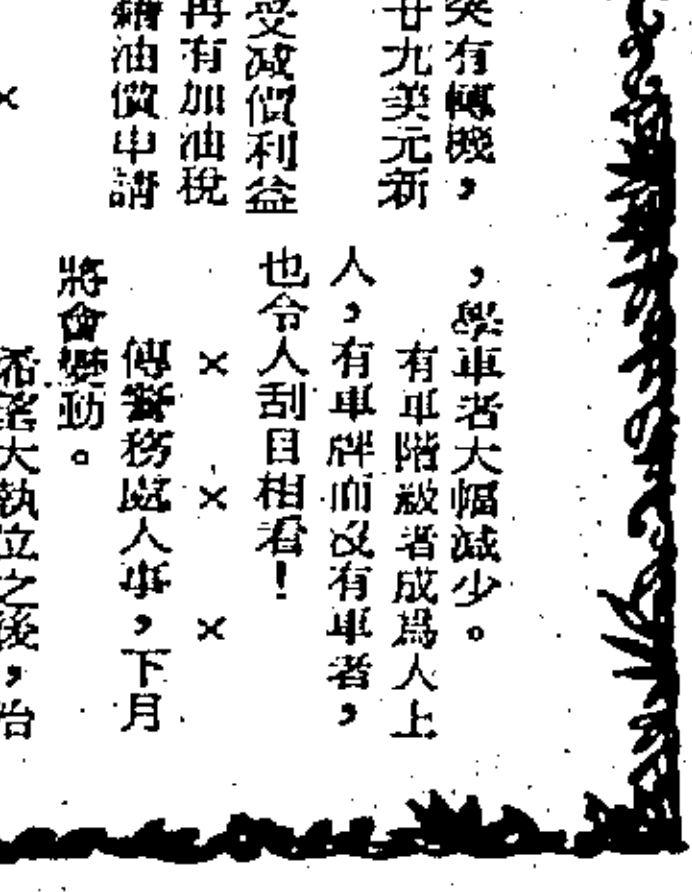 突有轉機，
廿九美元新
受減價利益
再有加油稅
油價申請
×
，學車者大幅減少。
有車階級者成爲人上
人，有車牌而沒有車者，
也令人刮目相看！
× × ×
傳警務處人事，下月
將會變動。
希望大執位之後，治